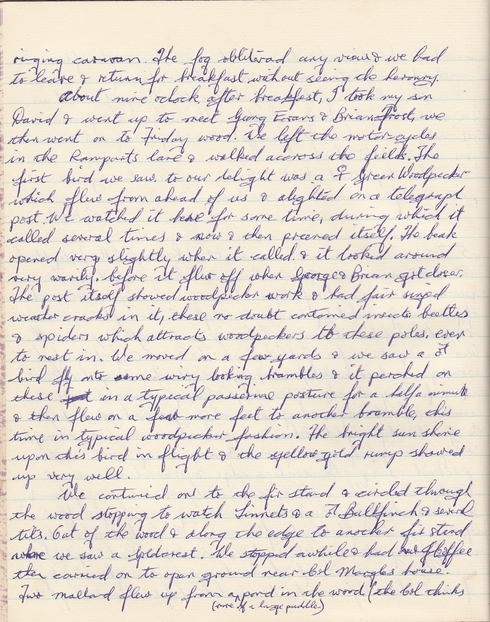 ringing caravan. The fog obliterad any view & we had
to leave & return for breakfast without seeing the heronry.
About nine oclock after breakfast, I took my son
David & went up to meet Georg Evans & Brian Frost, we
then went on to Friday wood. We left the motor cycles
in the Ramparts lane & walked accross the fields. The
first bird we saw to our delight was a ♀ Green Woodpecker
which flew from ahead of us & alighted on a telegraph
post. We watched it here for some time, during which it
called several times & now & then preened itself. The beak
opened very slightly when it called & it looked around
very warily, before it flew off when George & Brian got closer.
The post itself showed woodpecker work & had fair sized
weather cracks in it, these no doubt contained insects beetles
& spiders which attracts woodpeckers to these poles, even
to nest in. We moved on a few yards & we saw a ♂
bird fly onto some wiry looking brambles & it perched on
these in a typical passerine posture for a half a minute
& then flew on a few more feet to another bramble, this
time in typical woodpecker fashion. The bright sun shone
upon this bird in flight & the yellow gold rump showed
up very well.
We continued on to the fir stand & circled through
the wood stopping to watch Linnets & a ♂ Bullfinch & several
tits. Out of the wood & along the edge to another fir stand
where we saw a Goldcrest. We stopped awhile & had coffee
then carried on to open ground near Col Margles house.
Two mallard flew up from a pond in the wood (the Col thinks
(more of a large puddle)